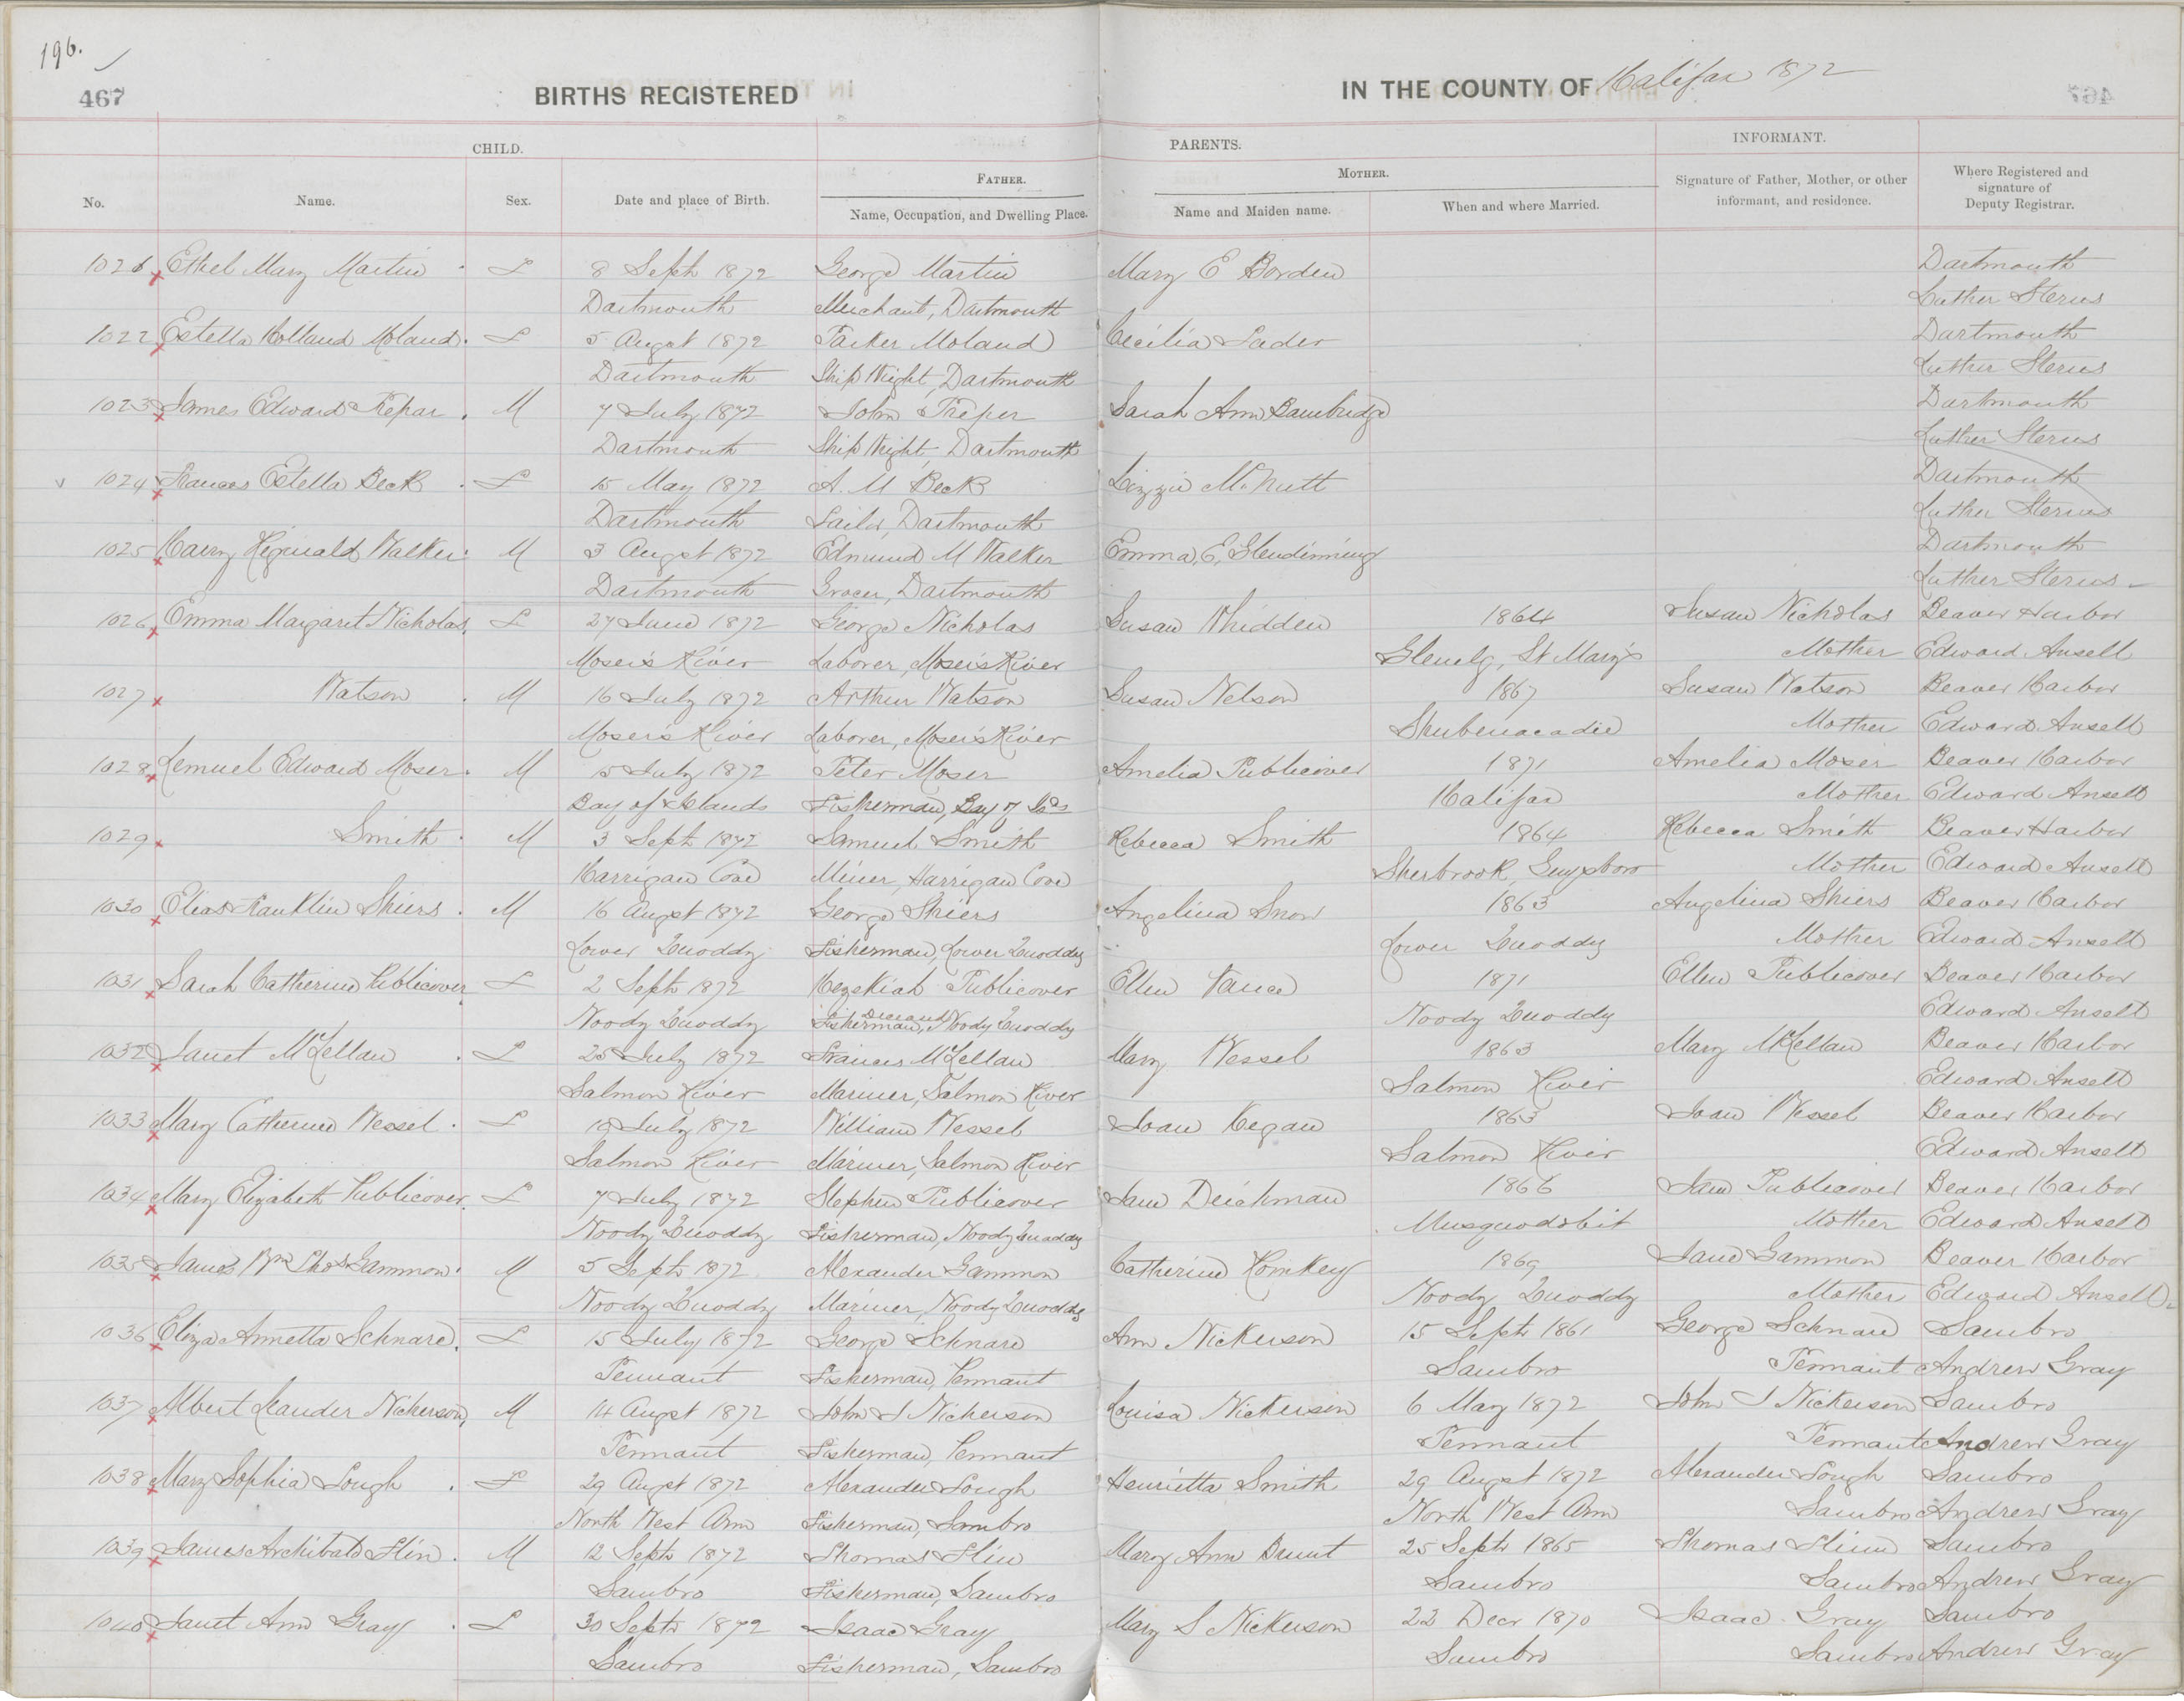 196.
467
BIRTHS REGISTERED
IN THE COUNTY OF Halifax 1872
CHILD. PARENTS. INFORMANT.
No. Name. Sex. Date and place of Birth. FATHER. Name, Occupation, and Dwelling Place. MOTHER. Name and Maiden name. When and where Married. Signature of Father, Mother, or other informant, and residence. Where Registered and signature of Deputy Registrar.
1021 Ethel Mary Martin F 8 Sept 1872 George Martin Mary E Borden Dartmouth
Dartmouth Merchant, Dartmouth Luther Sterns
1022 Estella Holland Moland F 5 Augst 1872 Parker Moland Cecilia Dartmouth
Dartmouth Ship Wright, Dartmouth Luther Sterns
1023 James Edward Trepar M 7 July 1872 John Treper Sarah Ann Bambridge Dartmouth
Dartmouth Ship Wright, Dartmouth Luther Sterns
1024 Frances Estella Beck F 15 May 1872 A. M Beck Lizzie McNutt Dartmouth
Dartmouth Sailor, Dartmouth Luther Sterns
1025 Harry Reginald Walker M 3 Augst 1872 Edmund M Walker Emma E Glendinning Dartmouth
Dartmouth Grocer, Dartmouth Luther Sterns
1026 Emma Margaret Nicholas F 27 June 1872 George Nicholas Susan Whidden 1864 Susan Nicholas Beaver Harbor
Moser's River Laborer, Moser's River Glenelg, St Mary's Mother Edward Ansell
1027 Watson M 16 July 1872 Arthur Watson Susan Nelson 1867 Susan Watson Beaver Harbor
Moser's River Laborer, Moser's River Shubenacadie Mother Edward Ansell
1028 Lemuel Edward Moser M 15 July 1872 Peter Moser Amelia Publicover 1871 Amelia Moser Beaver Harbor
Bay of Islands Fisherman, Bay of Isds Halifax Mother Edward Ansell
1029 Smith M 3 Sept 1872 Samuel Smith Rebecca Smith 1864 Rebecca Smith Beaver Harbor
Harrigan Cove Miner, Harrigan Cove Sherbrook, Guysboro Mother Edward Ansell
1030 Elias Franklin Shiers M 16 Augst 1872 George Shiers Angelina Snow 1863 Angelina Shiers Beaver Harbor
Lower Quoddy Fisherman, Lower Quoddy Lower Quoddy Mother Edward Ansell
1031 Sarah Catherine Publicover F 2 Sept 1872 Hezekiah Publicover Ellen Vance 1871 Ellen Publicover Beaver Harbor
Deceased
Noody Quoddy Fisherman, Noody Quoddy Noody Quoddy Edward Ansell
1032 Janet McLellan F 25 July 1872 Francis McLellan Mary Wessel 1863 Mary McLellan Beaver Harbor
Salmon River Mariner, Salmon River Salmon River Edward Ansell
1033 Mary Catherine Wessel F July 1872 William Wessel Joan Kegan 1863 Joan Wessel Beaver Harbor
Salmon River Mariner, Salmon River Salmon River Edward Ansell
1034 Mary Elizabeth Publicover F 7 July 1872 Stephen Publicover Jane Deickman 1866 Jane Publicover Beaver Harbor
Noody Quoddy Fisherman, Noody Quoddy Musquodobit Mother Edward Ansell
1035 James Wm Thos Gammon M 5 Sept 1872 Alexander Gammon Catherine Homkey 1869 Jane Gammon Beaver Harbor
Noody Quoddy Mariner, Noody Quoddy Noody Quoddy Mother Edward Ansell
1036 Eliza Annetta Schnare F 15 July 1872 George Schnare Ann Nickerson 15 Sept 1861 George Schnare Sambro
Pennant Fisherman, Pennant Sambro Pennant Andrew Gray
1037 Albert Leander Nickerson M 14 Augst 1872 John S Nickerson Louisa Nickerson 6 May 1872 John S Nickerson Sambro
Pennant Fisherman, Pennant Pennant Pennant Andrew Gray
1038 Mary Sophia Lough F 29 Augst 1872 Alexander Lough Henrietta Smith 29 Augst 1872 Alexander Lough Sambro
North West Arm Fisherman, Sambro North West Arm Sambro Andrew Gray
1039 James Archibald Flin M 12 Sept 1872 Thomas Flin Mary Ann Brunt 25 Sept 1865 Thomas Flinn Sambro
Sambro Fisherman, Sambro Sambro Sambro Andrew Gray
1040 Janet Ann Gray F 30 Sept 1872 Isaac Gray Mary S Nickerson 22 Decr 1870 Isaac Gray Sambro
Sambro Fisherman, Sambro Sambro Sambro Andrew Gray